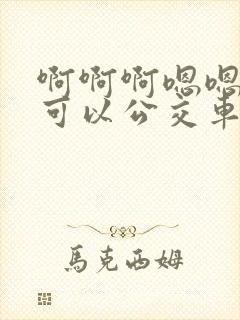 啊啊啊嗯嗯
可以公交車
馬克西姆